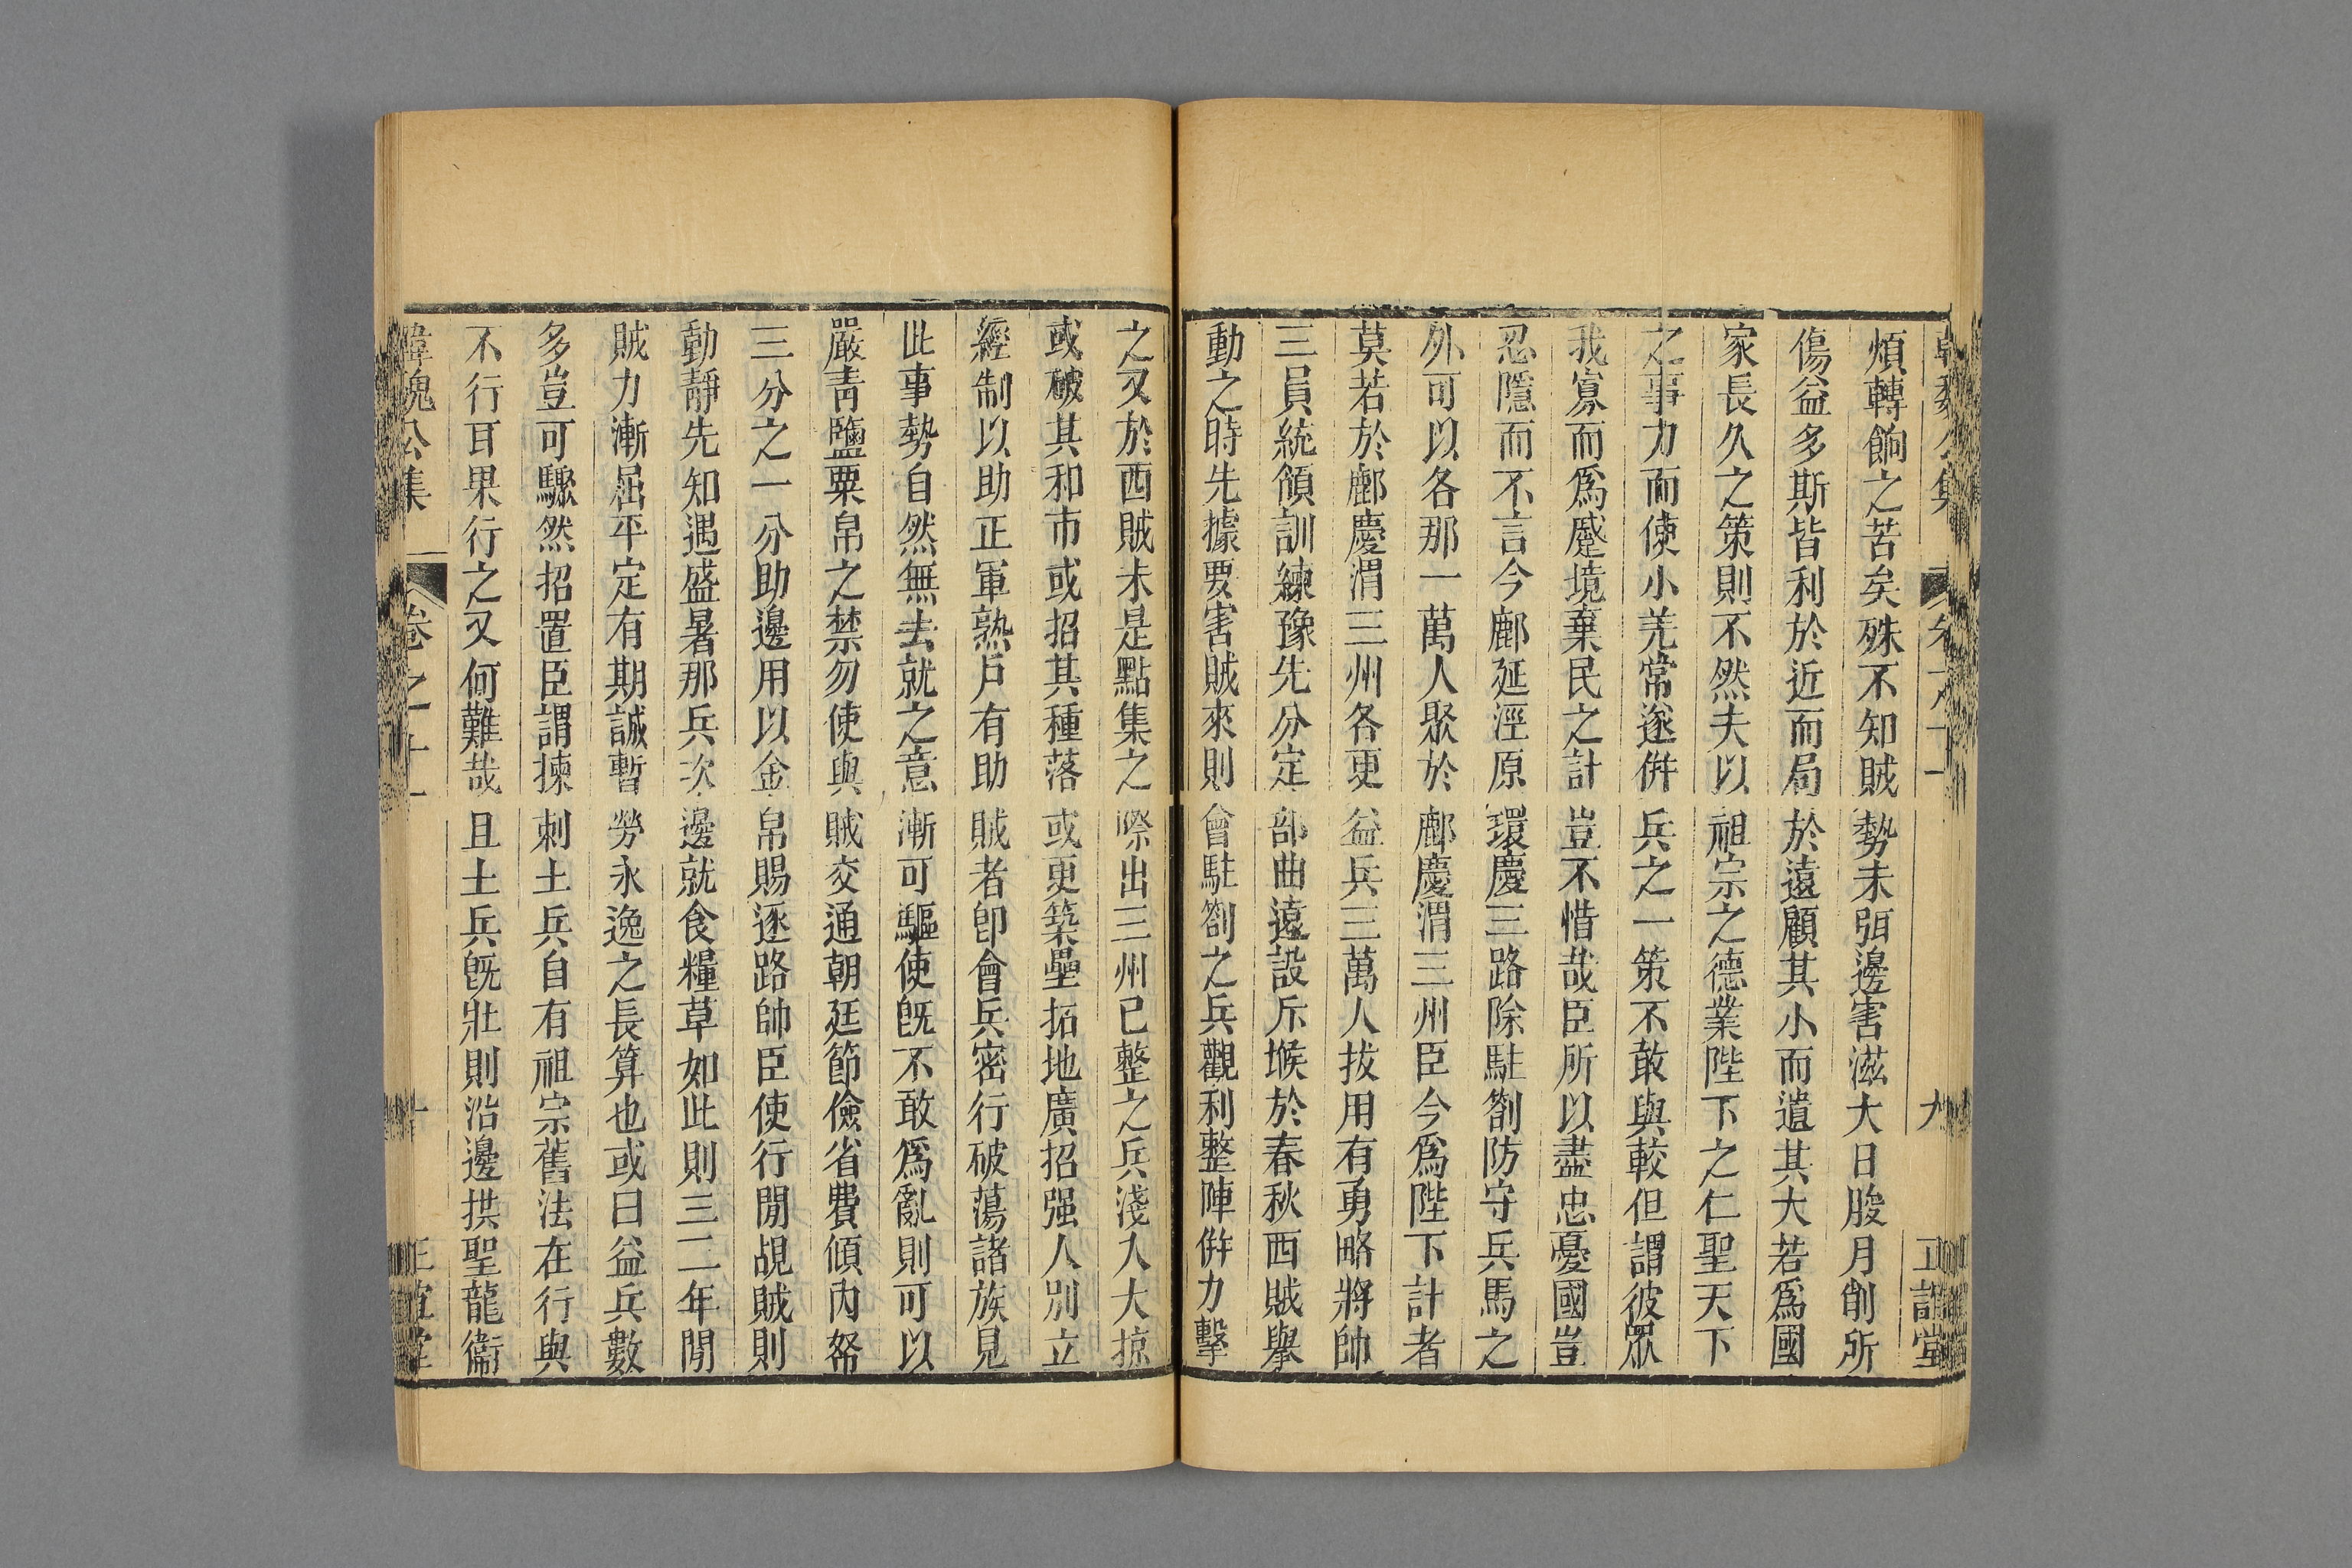 煩轉餉之苦矣殊不知賊勢未弭邊害滋大日朘月削所
傷益多斯皆利於近而局於遠顧其小而遺其大若爲國
家長久之策則不然夫以祖宗之德業陛下之仁聖天下
之事力而使小羌常遂併兵之一策不敢與較但謂彼眾
我寡而爲蹙境棄民之計豈不惜哉臣所以盡忠憂國豈
忍隱而不言今鄜延涇原環慶三路除駐劄防守兵馬之
外可以各那一萬人聚於鄜慶渭三州臣今爲陛下計者
莫若於鄜慶渭三州各更益兵三萬人拔用有勇略將帥
三員統領訓練豫先分定部曲遠設斥堠於春秋西賊舉
動之時先據要害賊來則會駐劄之兵觀利整陣併力擊
之又於西賊未是點集之際出三州已整之兵淺入大掠
或破其和市或招其種落或更築壘拓地廣招强人別立
經制以助正軍熟戶有助賊者卽會兵密行破蕩諸族見
此事勢自然無去就之意漸可驅使旣不敢爲亂則可以
嚴靑鹽粟帛之禁勿使與賊交通朝廷節儉省費傾內帑
三分之一分助邊用以金帛賜逐路帥臣使行閒覘賊則
動靜先知遇盛暑那兵次邊就食糧草如此則三二年閒
賊力漸屈平定有期誠暫勞永逸之長算也或曰益兵數
多豈可驟然招置臣謂揀刺土兵自有祖宗舊法在行與
不行耳果行之又何難哉且土兵旣壯則沿邊拱聖龍衞
韓魏公集 卷之十一 十 正誼堂